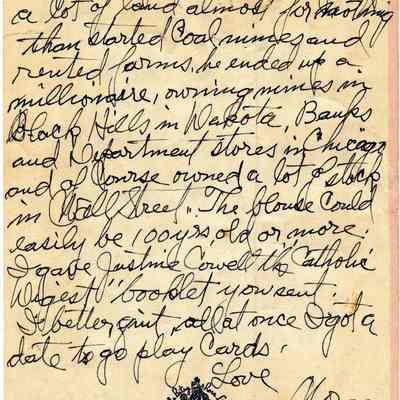 a lot of land almost for nothing
than started Coal mines and
rented farms. he ended up a
millionaire, owning mines in
Black Hills in Dakota, Banks
and Department stores in Chicago
and of Course owned a lot of stock
in Wall Street. The blouse could
easily be 100 yrs, old or more.
I gave Justine Cowell the "Catholic
Digest" booklet you sent.
I better quit, all at once I got a
date to go play Cards.
Love